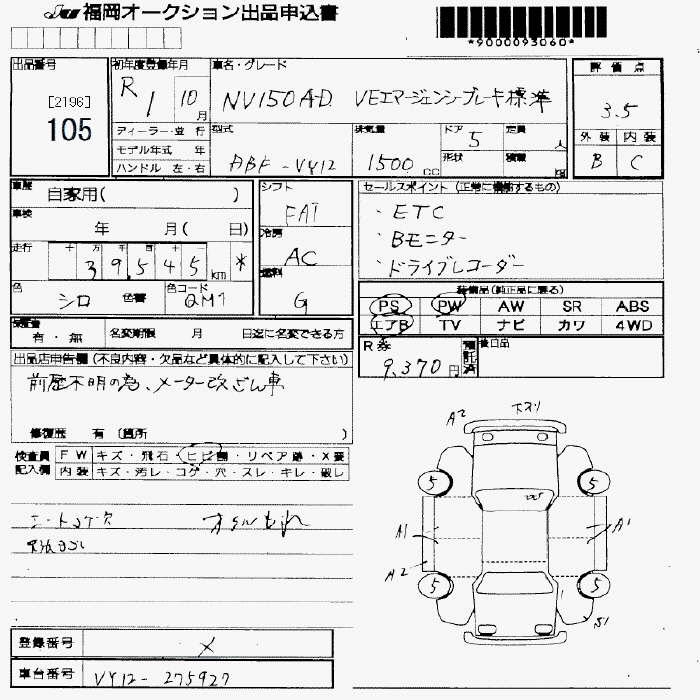 福岡オークション出品申込書
*9000093060*
出品番号
[2196]
105
初年度登録年月
R 1 10月
車名・グレード
NV150AD VEエマージェンシーブレーキ標準
評価点
3.5
外装 内装
B C
ディーラー・並行
モデル年式 年
ハンドル 左・右
型式
ABF-VY12
排気量
1500 CC
ドア 5
形状
定員 人
積載 kg
車歴 自家用( )
車検 年 月( 日)
走行 十 万 千 百 十
39,545 km *
色 シロ 色替
色コード QM1
シフト
FAT
冷房
AC
燃料
G
セールスポイント (正常に機能するもの)
・ETC
・Bモニター
・ドライブレコーダー
装備品(純正品に限る)
PS PW AW SR ABS
エアB TV ナビ カワ 4WD
保証書
有・無
名変期限 月 日迄に名変できる方
R券
9,370円
預託済
後日品
出品店申告欄(不良内容・欠品など具体的に記入して下さい)
前歴不明の為、メーター改ざん車
修復歴 有 〔箇所 〕
検査員記入欄
FW キズ・飛石・ヒビ割・リペア跡・X要
内装 キズ・汚レ・コゲ・穴・スレ・キレ・破レ
シートコゲ穴
オイルもれ
A2 下スリ
5 5
A1 A1
A2
5 5
S1
登録番号 ×
車台番号 VY12-275927